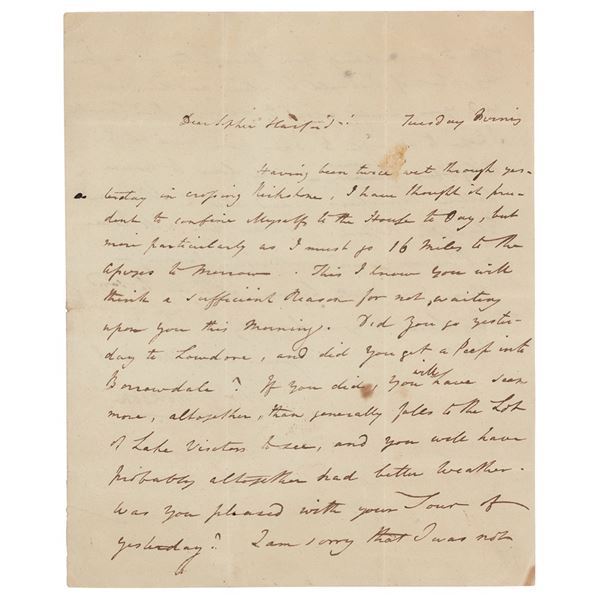 Dear Sophia Harford -! Tuesday Morning
Having been twice wet through yes-
terday in crossing Kirkstone, I have thought it pru-
dent to confine Myself to the House to Day, but
more particularly as I must go 16 Miles to the
to Morrow. This I know you will
think a sufficient Reason for not waiting
upon you this Morning. Did You go yester-
day to Lowdore, and did you get a Peep into
Borrowdale? If You did, You will have seen
more, altogether, than generally falls to the Lot
of Lake Visitors to see, and you will have
probably altogether had better Weather.
was you pleased with your Tour of
yesterday? I am sorry that I was not